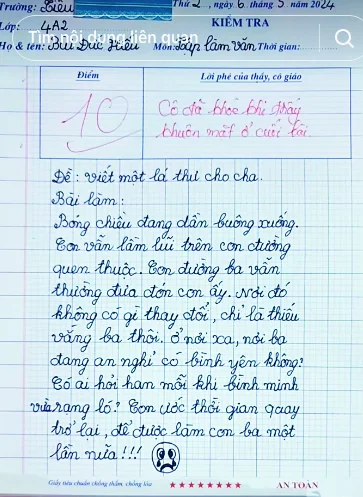 Trường: Tiểu
Thứ 2, ngày 6 tháng 5 năm 2024
Lớp: 4A2
KIỂM TRA
Tìm nội dung liên quan
Họ & tên: Bùi Đức Hiếu Môn: Tập làm văn Thời gian:
Điểm
Lời phê của thầy, cô giáo
10
Cô đã khóc khi thấy
khuôn mặt ở cuối bài.
Đề: viết một lá thư cho cha.
Bài làm:
Bóng chiều đang dần buông xuống.
Con vẫn lầm lũi trên con đường
quen thuộc. Con đường ba vẫn
thường đưa đón con ấy. Nơi đó
không có gì thay đổi, chỉ là thiếu
vắng ba thôi. Ở nơi xa, nơi ba
đang an nghỉ có bình yên không?
Có ai hỏi han mỗi khi bình minh
vừa rạng ló? Con ước thời gian quay
trở lại, để được làm con ba một
lần nữa!!!
Giấy tiêu chuẩn chống thấm, chống lóa
AN TOÀN